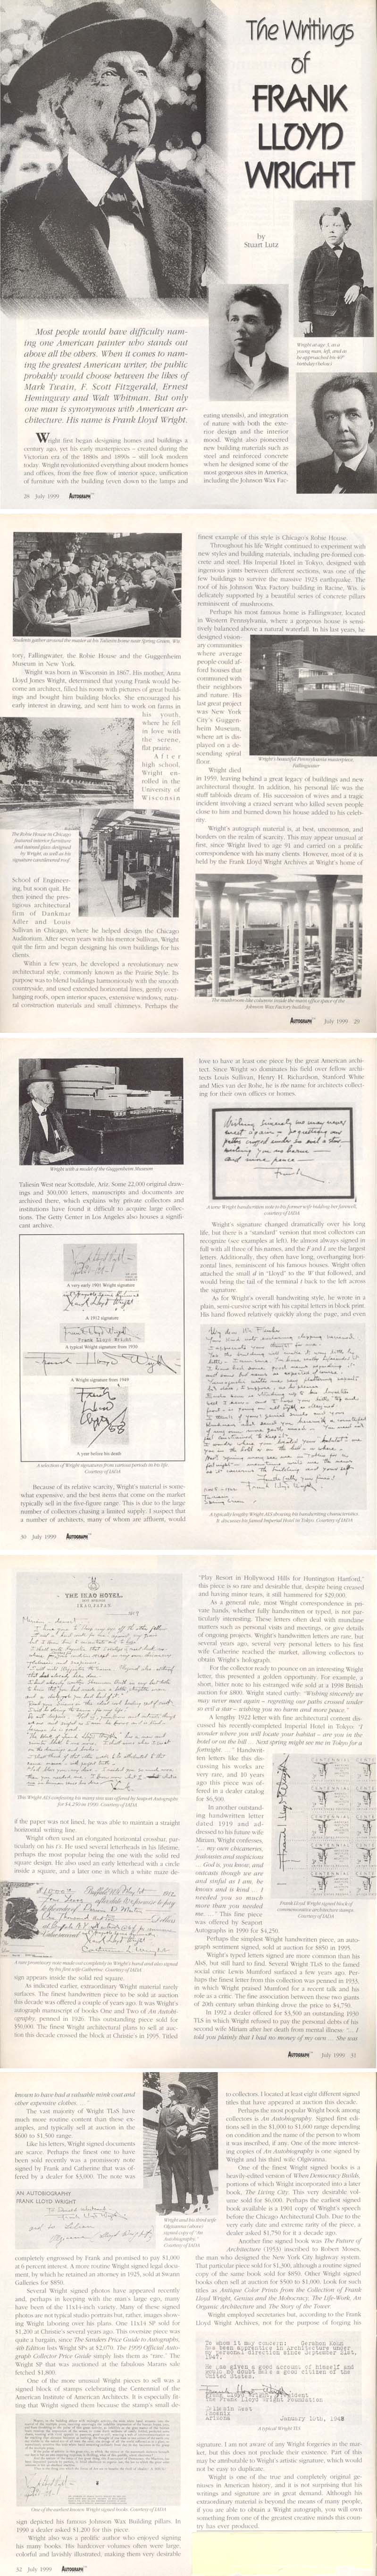 The Writings
of
FRANK
LLOYD
WRIGHT
by
Stuart Lutz
Wright at age 3, as a
young man, left, and as
he approached his 40th
birthday (below)
Most people would have difficulty nam-
ing one American painter who stands out
above all the others. When it comes to nam-
ing the greatest American writer, the public
probably would choose between the likes of
Mark Twain, F. Scott Fitzgerald, Ernest
Hemingway and Walt Whitman. But only
one man is synonymous with American ar-
chitecture. His name is Frank Lloyd Wright.
Wright first began designing homes and buildings a
century ago, yet his early masterpieces – created during the
Victorian era of the 1880s and 1890s – still look modern
today. Wright revolutionized everything about modern homes
and offices, from the free flow of interior space, unification
of furniture with the building (even down to the lamps and
eating utensils), and integration
of nature with both the exte-
rior design and the interior
mood. Wright also pioneered
new building materials such as
steel and reinforced concrete
when he designed some of the
most gorgeous sites in America,
including the Johnson Wax Fac-
28 July 1999 AUTOGRAPH
Students gather around the master at his Taliesin home near Spring Green, Wis.
tory, Fallingwater, the Robie House and the Guggenheim
Museum in New York.
Wright was born in Wisconsin in 1867. His mother, Anna
Lloyd Jones Wright, determined that young Frank would be-
come an architect, filled his room with pictures of great build-
ings and bought him building blocks. She encouraged his
early interest in drawing, and sent him to work on farms in
his youth,
where he fell
in love with
the serene,
flat prairie.
After
high school,
Wright en-
rolled in the
University of
Wisconsin
The Robie House in Chicago
featured interior furniture
and stained glass designed
by Wright, as well as his
signature cantilevered roof
School of Engineer-
ing, but soon quit. He
then joined the pres-
tigious architectural
firm of Dankmar
Adler and Louis
Sullivan in Chicago, where he helped design the Chicago
Auditorium. After seven years with his mentor Sullivan, Wright
quit the firm and began designing his own buildings for his
clients.
Within a few years, he developed a revolutionary new
architectural style, commonly known as the Prairie Style. Its
purpose was to blend buildings harmoniously with the smooth
countryside, and used extended horizontal lines, gently over-
hanging roofs, open interior spaces, extensive windows, natu-
ral construction materials and small chimneys. Perhaps the
finest example of this style is Chicago's Robie House.
Throughout his life Wright continued to experiment with
new styles and building materials, including pre-formed con-
crete and steel. His Imperial Hotel in Tokyo, designed with
ingenious joints between different sections, was one of the
few buildings to survive the massive 1923 earthquake. The
roof of his Johnson Wax Factory building in Racine, Wis. is
delicately supported by a beautiful series of concrete pillars
reminiscent of mushrooms.
Perhaps his most famous house is Fallingwater, located
in Western Pennsylvania, where a gorgeous house is sensi-
tively balanced above a natural waterfall. In his last years, he
designed vision-
ary communities
where average
people could af-
ford houses that
communed with
their neighbors
and nature. His
last great project
was New York
City's Guggen-
heim Museum,
where art is dis-
played on a de-
scending spiral
floor.
Wright's beautiful Pennsylvania masterpiece,
Fallingwater
Wright died
in 1959, leaving behind a great legacy of buildings and new
architectural thought. In addition, his personal life was the
stuff tabloids dream of. His succession of wives and a tragic
incident involving a crazed servant who killed seven people
close to him and burned down his house added to his celeb-
rity.
Wright's autograph material is, at best, uncommon, and
borders on the realm of scarcity. This may appear unusual at
first, since Wright lived to age 91 and carried on a prolific
correspondence with his many clients. However, most of it is
held by the Frank Lloyd Wright Archives at Wright's home of
The mushroom-like columns inside the main office space of the
Johnson Wax Factory building.
AUTOGRAPH July 1999 29
Wright with a model of the Guggenheim Museum
Taliesin West near Scottsdale, Ariz. Some 22,000 original draw-
ings and 300,000 letters, manuscripts and documents are
archived there, which explains why private collectors and
institutions have found it difficult to acquire large collec-
tions. The Getty Center in Los Angeles also houses a signifi-
cant archive.
A very early 1901 Wright signature
A 1912 signature
Frank Lloyd Wright
A typical Wright signature from 1930
A Wright signature from 1949
A year before his death
A selection of Wright signatures from various periods in his life.
Courtesy of IADA
Because of its relative scarcity, Wright's material is some-
what expensive, and the best items that come on the market
typically sell in the five-figure range. This is due to the large
number of collectors chasing a limited supply. I suspect that
a number of architects, many of whom are affluent, would
30 July 1999 AUTOGRAPH
love to have at least one piece by the great American archi-
tect. Since Wright so dominates his field over fellow archi-
tects Louis Sullivan, Henry H. Richardson, Stanford White
and Mies van der Rohe, he is the name for architects collect-
ing for their own offices or homes.
Wishing sincerely we may never
meet again – regretting our
paths crossed under so evil a star –
wishing you no harm –
and more peace –
Frank
A terse Wright handwritten note to his former wife bidding her farewell,
courtesy of IADA
Wright's signature changed dramatically over his long
life, but there is a "standard" version that most collectors can
recognize (see examples at left). He almost always signed in
full with all three of his names, and the F and L are the largest
letters. Additionally, they often have long, overhanging hori-
zontal lines, reminiscent of his famous houses. Wright often
attached the small d in "Lloyd" to the W that followed, and
would bring the tail of the terminal t back to the left across
the signature.
As for Wright's overall handwriting style, he wrote in a
plain, semi-cursive script with his capital letters in block print.
His hand flowed relatively quickly along the page, and even
A typically lengthy Wright ALS showing his handwriting characteristics.
It discusses his famed Imperial Hotel in Tokyo. Courtesy of IADA
THE IKAO HOTEL
IKAO, JAPAN
This Wright ALS confessing his many sins was offered by Seaport Autographs
for $4,250 in 1990. Courtesy of IADA
if the paper was not lined, he was able to maintain a straight
horizontal writing line.
Wright often used an elongated horizontal crossbar, par-
ticularly on his t's. He used several letterheads in his lifetime,
perhaps the most popular being the one with the solid red
square design. He also used an early letterhead with a circle
inside a square, and a late one in which a white maze de-
A rare promissory note made out completely in Wright's hand and also signed
by his first wife Catherine. Courtesy of IADA
sign appears inside the solid red square.
As indicated earlier, extraordinary Wright material rarely
surfaces. The finest handwritten piece to be sold at auction
this decade was offered a couple of years ago. It was Wright's
autograph manuscript of books One and Two of An Autobi-
ography, penned in 1926. This outstanding piece sold for
$50,000. The finest Wright architectural plans to sell at auc-
tion this decade crossed the block at Christie's in 1995. Titled
"Play Resort in Hollywood Hills for Huntington Hartford,"
this piece is so rare and desirable that, despite being creased
and having minor tears, it still hammered for $29,000.
As a general rule, most Wright correspondence in pri-
vate hands, whether fully handwritten or typed, is not par-
ticularly interesting. These letters often deal with mundane
matters such as personal visits and meetings, or give details
of ongoing projects. Wright's handwritten letters are rare, but
several years ago, several very personal letters to his first
wife Catherine reached the market, allowing collectors to
obtain Wright's holograph.
For the collector ready to pounce on an interesting Wright
letter, this presented a golden opportunity. For example, a
short, bitter note to his estranged wife sold at a 1998 British
auction for $800. Wright stated curtly, "Wishing sincerely we
may never meet again – regretting our paths crossed under
so evil a star – wishing you no harm and more peace."
A lengthy 1922 letter with fine architectural content dis-
cussed his recently-completed Imperial Hotel in Tokyo. "I
wonder where you will locate your habitat – are you in the
hotel or on the hill ... Next spring might see me in Tokyo for a
fortnight ..." Handwrit-
ten letters like this dis-
cussing his works are
very rare, and 10 years
ago this piece was of-
fered in a dealer catalog
for $6,500.
In another outstand-
ing handwritten letter
dated 1919 and ad-
dressed to his future wife
Miriam, Wright confesses,
"... my own obscurities,
jealousies and suspicions
... God is, you know, and
outcasts though we are
and sinful as I am, he
knows and is kind ... I
needed you so much
more than you needed
me ..." This fine piece
was offered by Seaport
Autographs in 1990 for $4,250.
Frank Lloyd Wright signed block of
commemorative architecture stamps.
Courtesy of IADA
Perhaps the simplest Wright handwritten piece, an auto-
graph sentiment signed, sold at auction for $850 in 1995.
Wright's typed letters signed are more common than his
ALsS, but still hard to find. Several Wright TLsS to the famed
social critic Lewis Mumford surfaced a few years ago. Per-
haps the finest letter from this collection was penned in 1933,
in which Wright praised Mumford for a recent talk and his
role as a critic. The fine association between these two giants
of 20th century urban thinking drove the price to $4,750.
In 1992 a dealer offered for $3,500 an outstanding 1930
TLS in which Wright refused to pay the personal debts of his
second wife Miriam after her death from mental illness: "... I
told you plainly that I had no money of my own ... She was
AUTOGRAPH July 1999 31
known to have had a valuable mink coat and
other expensive clothes. ..."
The vast majority of Wright TLsS have
much more routine content than these ex-
amples, and typically sell at auction in the
$600 to $1,500 range.
Like his letters, Wright signed documents
are scarce. Perhaps the finest one to have
been sold recently was a promissory note
signed by Frank and Catherine that was of-
fered by a dealer for $3,000. The note was
AN AUTOBIOGRAPHY
FRANK LLOYD WRIGHT
Wright and his third wife
Olgivanna (above)
signed copy of "An
Autobiography."
Courtesy of IADA
completely engrossed by Frank and promised to pay $1,000
at 6 percent. A more routine Wright signed legal docu-
ment, by which he retained an attorney in 1925, sold at Swann
Galleries for $850.
Several Wright signed photos have appeared recently
and, perhaps in keeping with the man's large ego, many
have been of the 11x14-inch variety. Many of these signed
photos are not typical studio portraits but, rather, images show-
ing Wright laboring over his plans. One 11x14 SP sold for
$1,200 at Christie's several years ago. This oversize piece was
quite a bargain, since The Sanders Price Guide to Autographs,
4th Edition lists Wright SPs at $2,070. The 1999 Official Auto-
graph Collector Price Guide simply lists them as "rare." The
Wright SP that was auctioned at the fabulous Marans sale
fetched $1,800.
One of the more unusual Wright pieces to sell was a
signed block of stamps celebrating the Centennial of the
American Institute of American Architects. It is especially fit-
ting that Wright signed them because the stamp's small de-
One of the earliest known Wright signed books. Courtesy of IADA
sign depicted his famous Johnson Wax Building pillars. In
1990 a dealer asked $1,200 for this piece.
Wright also was a prolific author who enjoyed signing
his many books. His hardcover volumes often were large,
colorful and lavishly illustrated, making them very desirable
32 July 1999 AUTOGRAPH
to collectors. I located at least eight different signed
titles that have appeared at auction this decade.
Perhaps the most popular Wright book among
collectors is An Autobiography. Signed first edi-
tions sell in the $1,000 to $1,600 range depending
on condition and the name of the person to whom
it was inscribed, if any. One of the more interest-
ing copies of An Autobiography is one signed by
Wright and his third wife Olgivanna.
One of the finest Wright signed books is a
heavily-edited version of When Democracy Builds,
portions of which Wright incorporated into a later
book, The Living City. This very desirable vol-
ume sold for $6,000. Perhaps the earliest signed
book available is a 1901 copy of Wright's speech
before the Chicago Architectural Club. Due to the
very early date and extreme rarity of the piece, a
dealer asked $1,750 for it a decade ago.
Another fine signed book was The Future of
Architecture (1953) inscribed to Robert Moses,
the man who designed the New York City highway system.
That particular piece sold for $1,300, although a routine signed
copy of the same book sold for $850. Other Wright signed
books often sell at auction for $500 to $1,000. Look for such
titles as Antique Color Prints from the Collection of Frank
Lloyd Wright, Genius and the Mobocracy, The Life-Work, An
Organic Architecture and The Story of the Tower.
Wright employed secretaries but, according to the Frank
Lloyd Wright Archives, not for the purpose of forging his
To whom it may concern:
Frank Lloyd Wright, President
The Frank Lloyd Wright Foundation
Taliesin West
Arizona
A typical Wright TLS
signature. I am not aware of any Wright forgeries in the mar-
ket, but this does not preclude their existence. Part of this
may be attributable to Wright's artistic signature, which would
not be easy to duplicate.
Wright is one of the true and completely original ge-
niuses in American history, and it is not surprising that his
writings and signature are in great demand. Although his
extraordinary material is beyond the means of many people,
if you are able to obtain a Wright autograph, you will own
something from one of the greatest creative minds this coun-
try has ever produced.